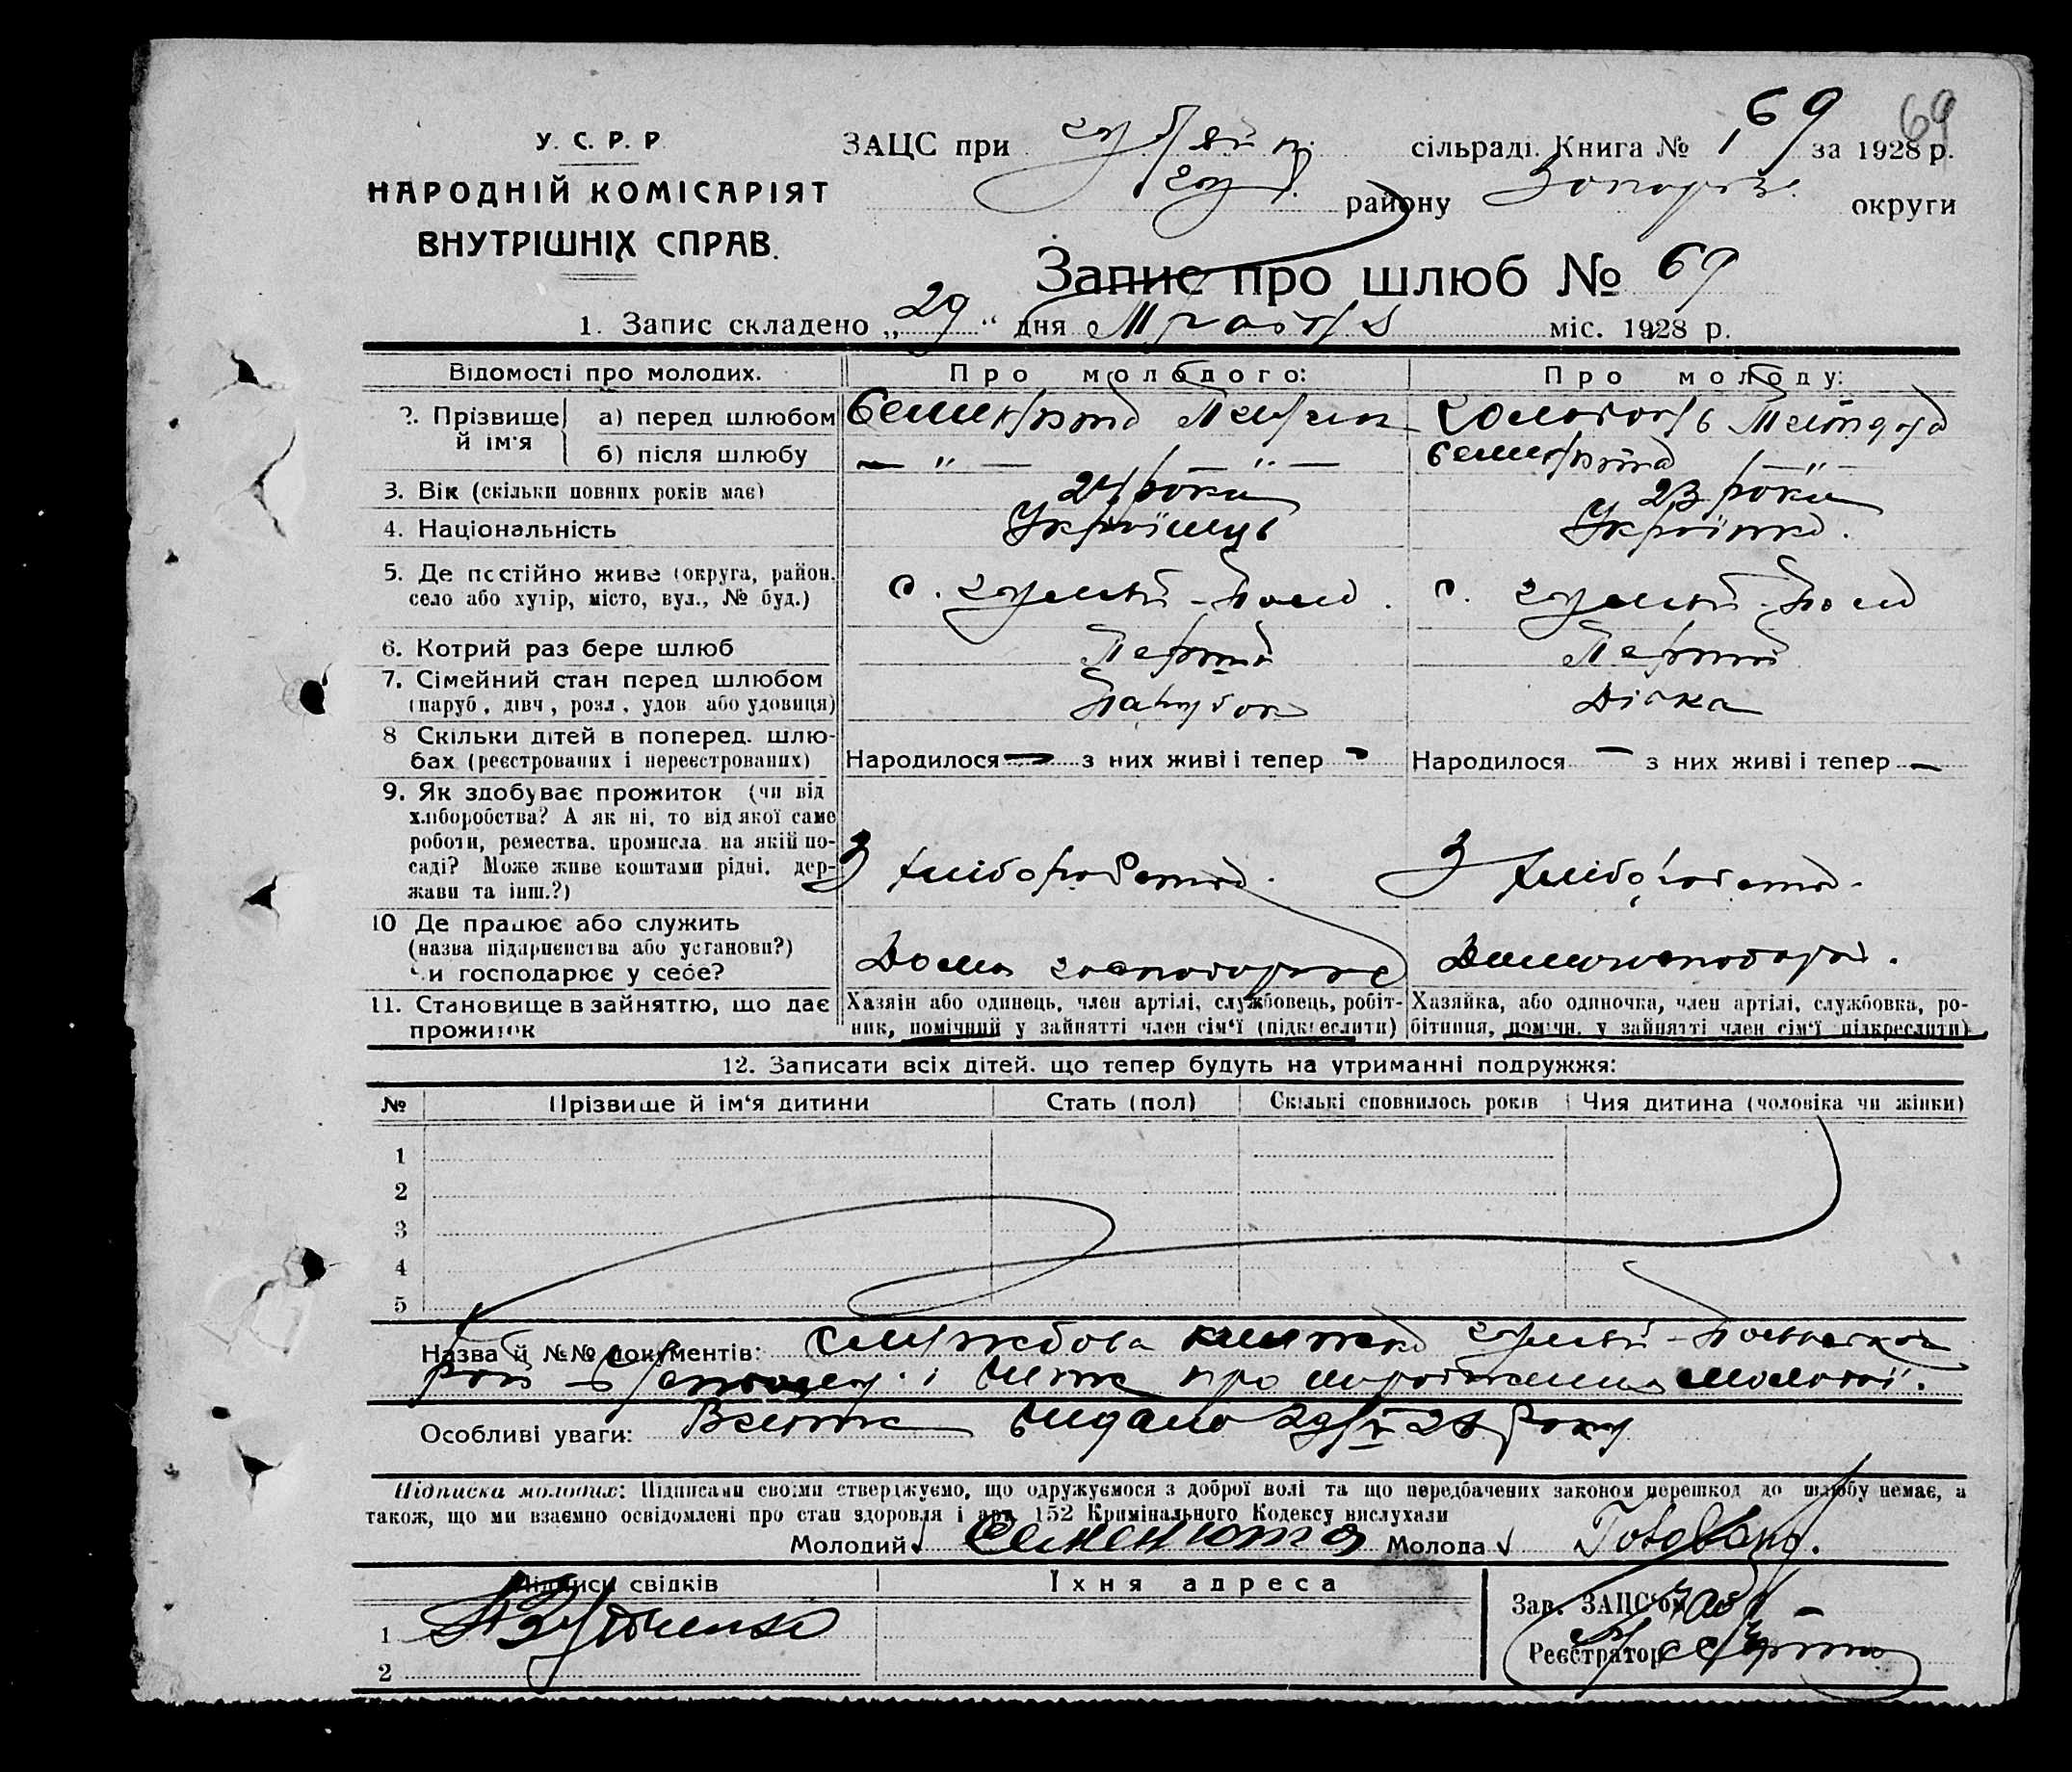 69
У. С. Р. Р.
НАРОДНІЙ КОМІСАРІЯТ
ВНУТРІШНІХ СПРАВ.
ЗАЦС при сільраді. Книга № 1, 69 за 1928 р.
району Запоріз. округи
Запис про шлюб № 69
1. Запис складено „29“ дня міс. 1928 р.
Відомості про молодих. Про молодого: Про молоду:
2. Прізвище й ім'я а) перед шлюбом Семенюта
б) після шлюбу — " — — " — Семенюта — " —
3. Вік (скільки повних років має) 24 роки 23 роки
4. Національність Українець Українка.
5. Де постійно живе (округа, район, село або хутір, місто, вул., № буд.) с. Гуляй-Поле. с. Гуляй-Поле
6. Котрий раз бере шлюб Перший Перший
7. Сімейний стан перед шлюбом (паруб., дівч., розл., удов. або удовиця) Парубок Дівка
8 Скільки дітей в поперед. шлюбах (реєстрованих і нереєстрованих) Народилося — з них живі і тепер - Народилося — з них живі і тепер —
9. Як здобуває прожиток (чи від
хліборобства? А як ні, то від якої саме
роботи, ремества, промисла на якій по-
саді? Може живе коштами рідні, дер-
жави та інш.?) З хліборобства. З хліборобства.
10 Де працює або служить
(назва підприємства або установи?)
Чи господарює у себе? Дома господарює
11. Становище в зайняттю, що дає прожиток
Хазяїн або одинець, член артілі, службовець, робіт-
ник, помічний у зайнятті член сім'ї (підкреслити)
Хазяйка, або одиночка, член артілі, службовка, ро-
бітниця, помічн. у зайнятті член сім'ї підкреслити)
12. Записати всіх дітей, що тепер будуть на утриманні подружжя:
№ Прізвище й ім'я дитини Стать (пол) Скількі сповнилось років Чия дитина (чоловіка чи жінки)
1
2
3
4
5
Назва й №№ документів: Службова книжка Гуляй-Польського
рай і про народження молодої.
Особливі уваги: видано 29/V 28 року
Підписка молодих: Підписами своїми стверджуємо, що одружуємося з доброї волі та що передбачених законом перешкод до шлюбу немає, а
також, що ми взаємно освідомлені про стан здоровля і арт. 152 Кримінального Кодексу вислухали
Молодий Семенюта Молода
Підписи свідків Їхня адреса
1
2
Зав. ЗАЦС'ом
Реєстратор